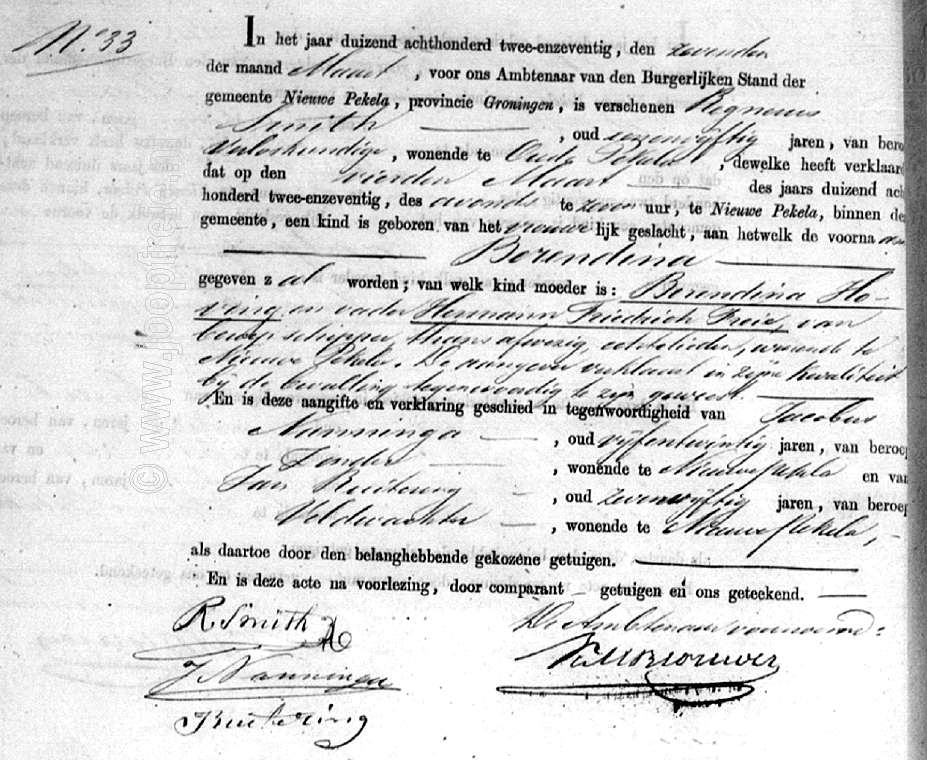 N.º 33
In het jaar duizend achthonderd twee-enzeventig, den zevenden
der maand Maart, voor ons Ambtenaar van den Burgerlijken Stand der
gemeente Nieuwe Pekela, provincie Groningen, is verschenen
Smith, oud jaren, van bero
wonende te Oude Pekela, dewelke heeft verklaard
dat op den vierden Maart des jaars duizend ach
honderd twee-enzeventig, des avonds te zeven uur, te Nieuwe Pekela, binnen de
gemeente, een kind is geboren van het vrouwelijk geslacht, aan hetwelk de voorna
Berendina
gegeven zal worden; van welk kind moeder is: Berendina Ho-
ving en vader Hermann Friedrich Freie, van
beroep schipper, thans afwezig, echtelieden, wonende te
Nieuwe Pekela. De aangever verklaart in zijne kwaliteit
bij de bevalling tegenwoordig te zijn geweest.
En is deze aangifte en verklaring geschied in tegenwoordigheid van Jacobus
Nanninga, oud vijfentwintig jaren, van beroep
wonende te Nieuwe Pekela en van
Jan, oud zevenvijftig jaren, van beroep
Veldwachter, wonende te Nieuwe Pekela,
als daartoe door den belanghebbende gekozene getuigen.
En is deze acte na voorlezing, door comparant getuigen en ons geteekend.
R. Smith
De Ambtenaar voornoemd:
J Nanninga
© www.joopfreie.n